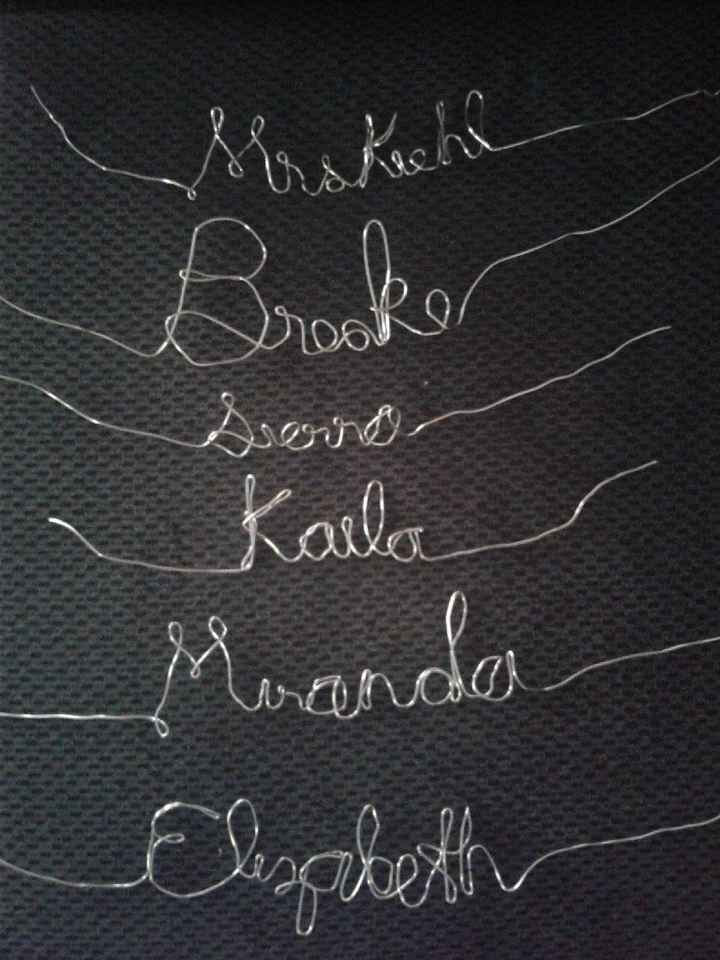 Mrs Kiehl
Brooke
Sierra
Kaila
Miranda
Elizabeth